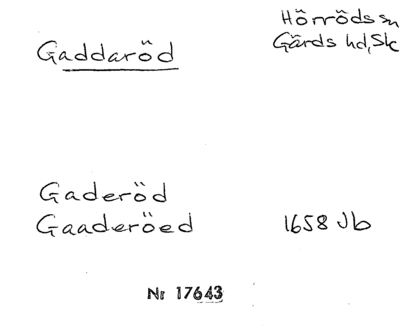 Gaddaröd
Hörröds sn
Gärds hd, Sk
Gaderöd
Gaaderöed 1658 Jb
Nr 17643